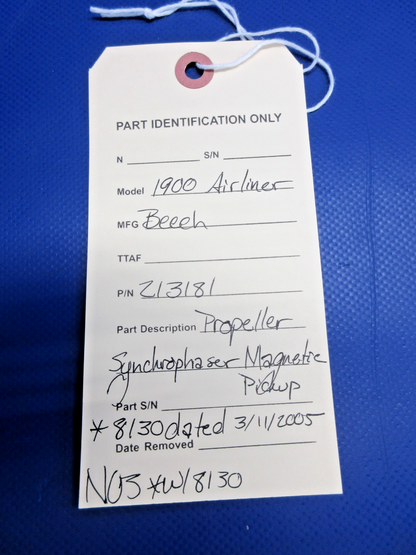 PART IDENTIFICATION ONLY
N ____________ S/N ____________
Model 1900 Airliner
MFG Beech
TTAF ____________
P/N 213181
Part Description Propeller
Synchrophaser Magnetic
Pickup
Part S/N ____________
* 8130 dated 3/11/2005
Date Removed ____________
NOS *W/8130